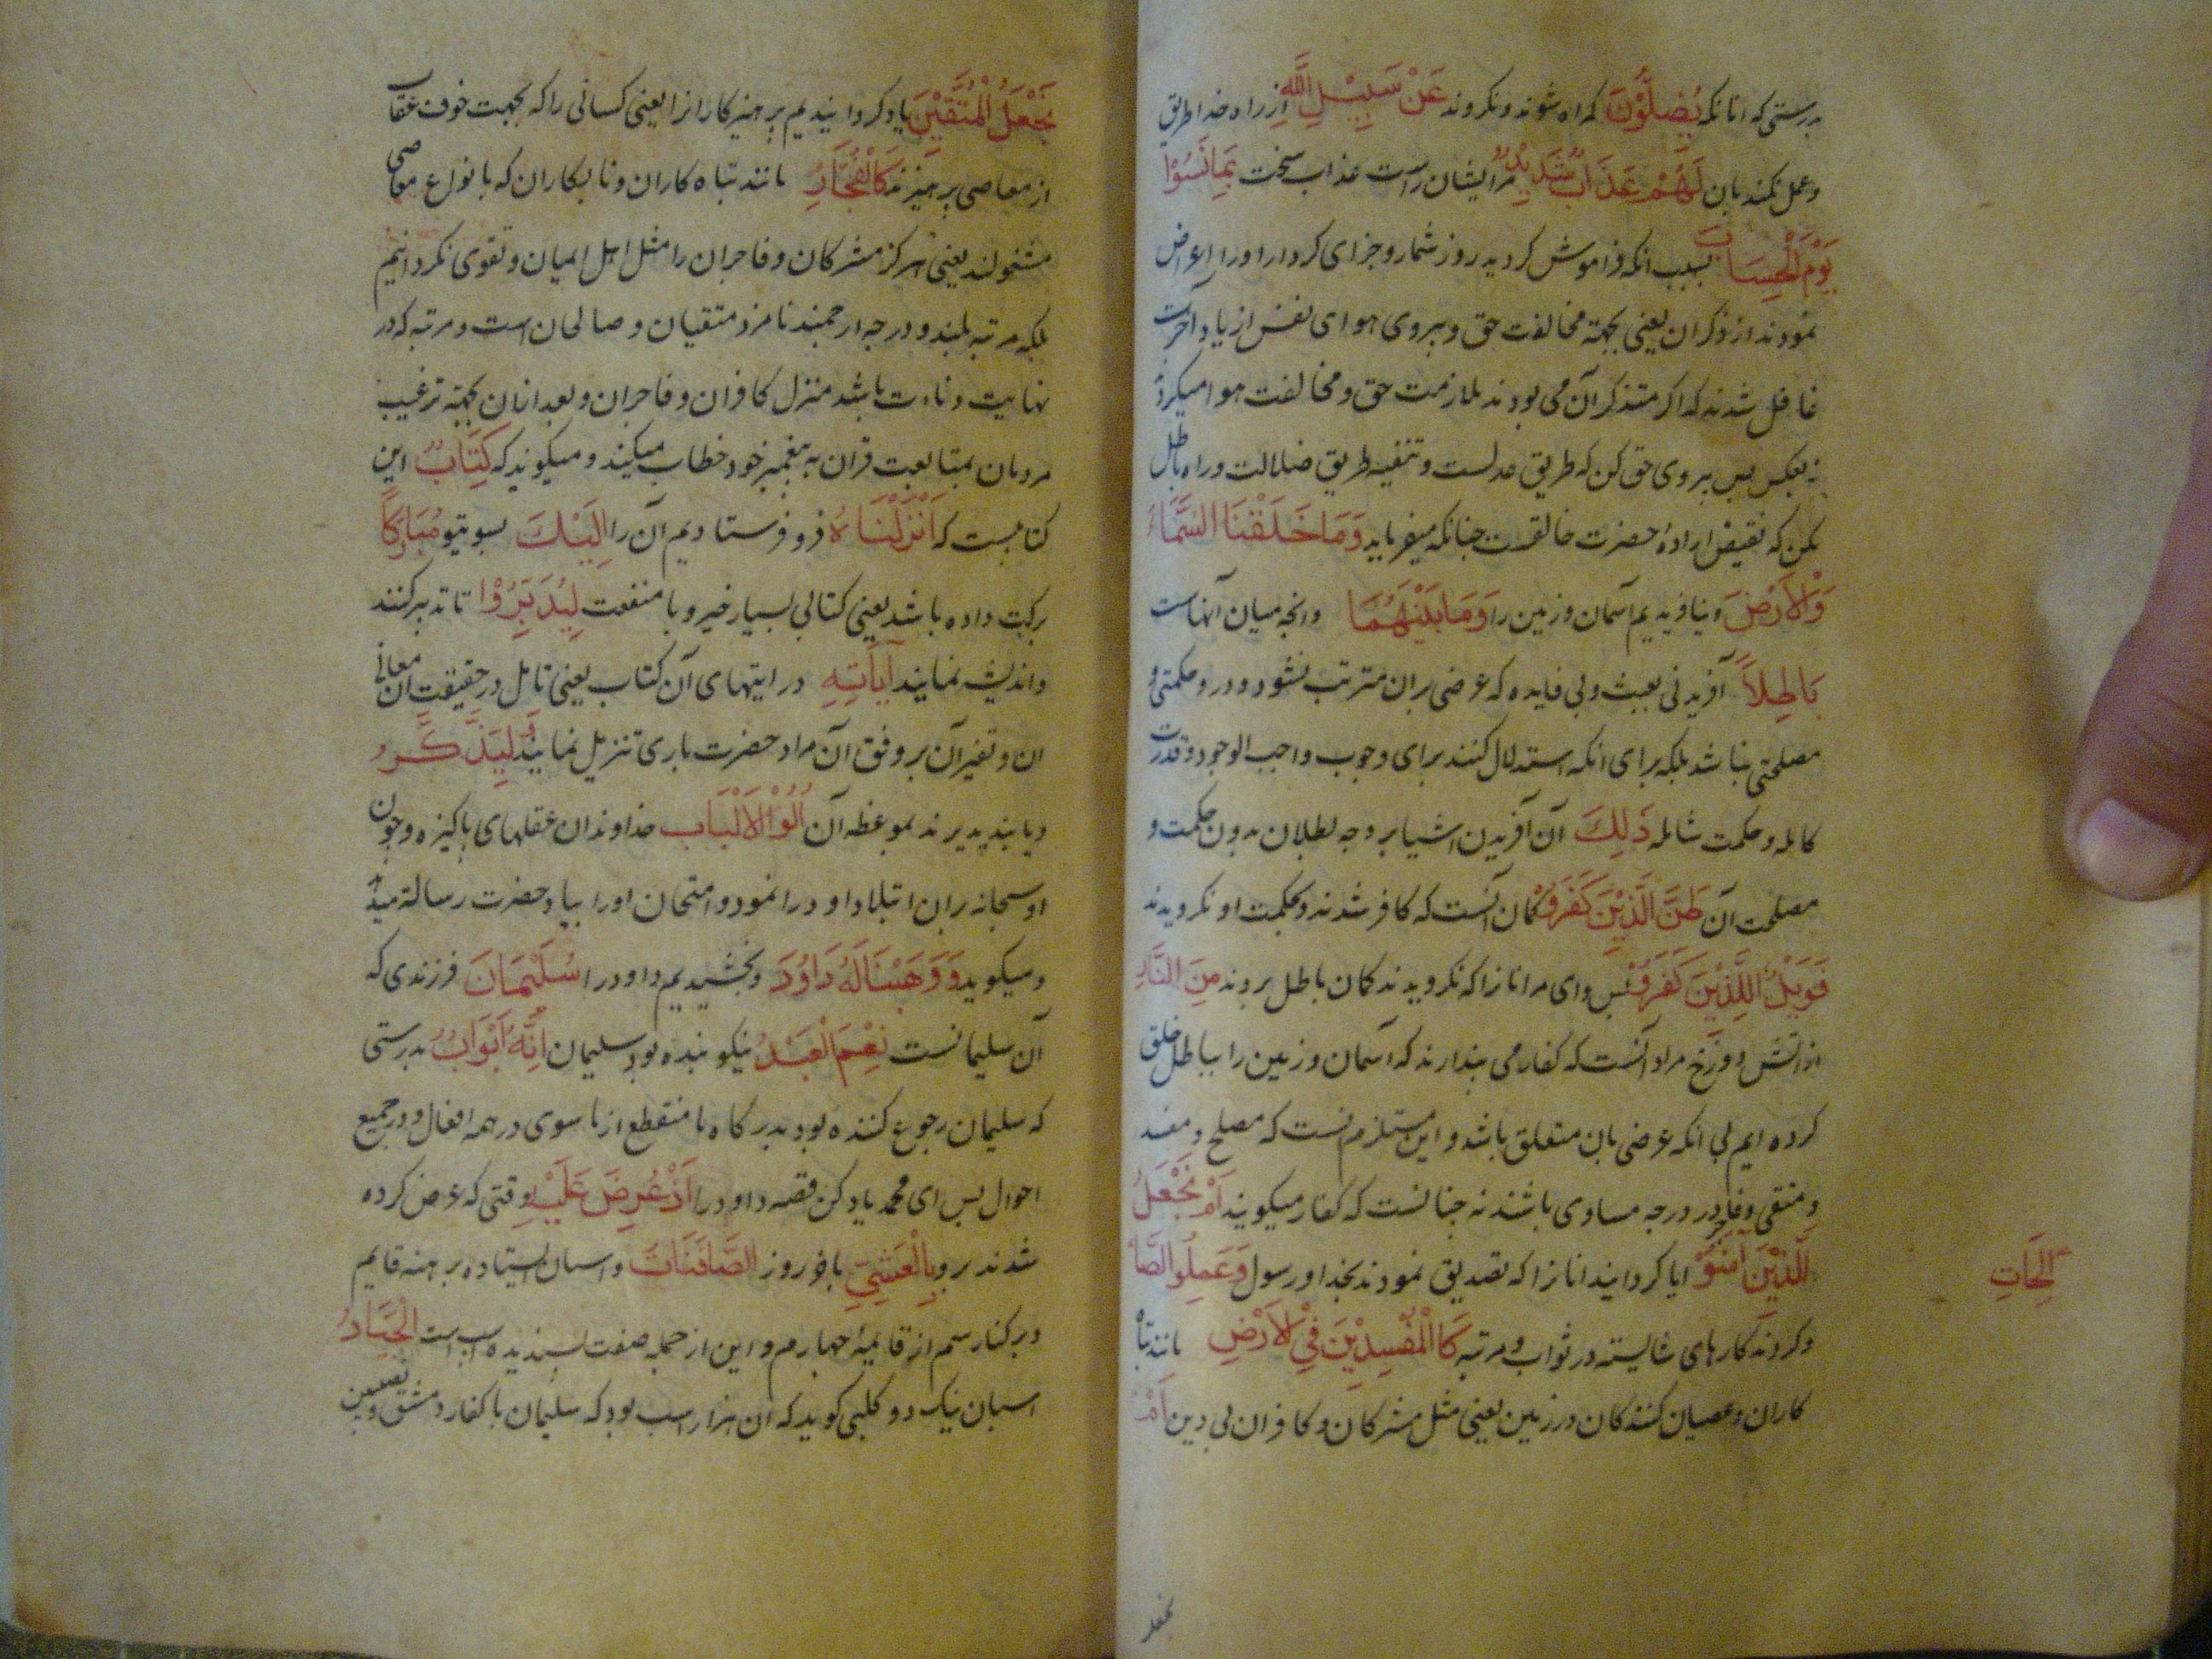 بدرستی که انانکه یُضِلُّوْنَ کمراه شوند و نکروند عَنْ سَبِیْلِ اللّٰهِ از راه خدا طریق
و عمل نکنند بان لَهُمْ عَذَابٌ شَدِیْدٌ مر ایشان راست عذاب سخت بِمَا نَسُوْا
یَوْمَ الْحِسَابِ بسبب انکه فراموش کردند روز شمار و جزای کردار او را اعراض
نمودند از ذکر ان یعنی بجهة مخالفت حق و پیروی هوای نفس از یاد آخرت
غافل شدند که اکر متذکر آن می بودند ملازمت حق و مخالفت هوا میکردند
نه بعکس پس پیروی حق کن که طریق عدلست و تنقیه طریق ضلالت و راه باطل
مکن که نقیض ارادهٔ حضرت خالقست چنانکه میفرماید وَمَا خَلَقْنَا السَّمَاءَ
وَالْاَرْضَ و نیافریدیم آسمان و زمین را وَمَا بَیْنَهُمَا وانچه میان آنهاست
بَاطِلاً آفریدنی بعبث و بی فایده که غرضی بران مترتب نشود و درو حکمتی و
مصلحتی نباشد بلکه برای انکه استدلال کنند برای وجوب واجب الوجود و قدرت
کامله و حکمت شامله ذَلِكَ آن آفریدن اشیا بر وجه بطلان بدون حکمت و
مصلحت آن ظَنَّ الَّذِیْنَ کَفَرُوْا کمان آنست که کافر شدند و بحکمت او نکرویدند
فَوَیْلٌ لِلَّذِیْنَ کَفَرُوْا پس وای مر انانرا که نکرویدند کمان باطل بروند مِنَ النَّارِ
از اتش دوزخ مراد آنست که کفار می پندارند که آسمان و زمین را بباطل خلق
کرده ایم بی انکه غرضی بان متعلق باشد و این مستلزم انست که مصلح و مفسد
و متقی و فاجر در درجه مساوی باشند نه چنانست که کفار میکویند اَمْ نَجْعَلُ
الَّذِیْنَ آمَنُوْا ایا کردانیم انانرا که تصدیق نمودند بخدا و رسول وَعَمِلُوا الصَّا
لِحَاتِ
و کردند کارهای شایسته در ثواب و مرتبه کَالْمُفْسِدِیْنَ فِیْ الْاَرْضِ مانند تباه
کاران و عصیان کنندکان در زمین یعنی مثل مشرکان و کافران بی دین اَمْ
نجعل
نَجْعَلُ الْمُتَّقِیْنَ یا کردانیدیم پرهیزکارانرا یعنی کسانی را که بجهت خوف عقاب
از معاصی پرهیزند کَالْفُجَّارِ مانند تباه کاران و نابکاران که بانواع معاصی
مشغولند یعنی هرکز مشرکان و فاجران را مثل اهل ایمان و تقوی نکردانیم
بلکه مرتبه بلند و درجه ارجمند نامزد متقیان و صالحان است و مرتبه که در
نهایت دناءت باشد منزل کافران و فاجران و بعد ازان بجهة ترغیب
مردمان بمتابعت قران به پیغمبر خود خطاب میکند و میکوید که کِتَابٌ این
کتابیست که اَنْزَلْنَاهُ فرو فرستادیم آن را اِلَیْكَ بسوی تو مُبَارَكًا
برکت داده باشد یعنی کتابی بسیار خیر و با منفعت لِیُدَبِّرُوْا تا تدبر کنند
و اندیشه نمایند آیَاتِهِ در ایتهای آن کتاب یعنی تامل در حقیقت معانی آن
ان و تفسیر آن بر وفق آن مراد حضرت باری تنزیل نمایند وَلِیَذَّکَّرَ
و یا پند پذیرند بموعظه آن اُولُوا الْاَلْبَاب خداوندان عقلهای پاکیزه و چون
او سبحانه بران ابتلا داود را نمود و امتحان او را بیاد حضرت رسالة میدهد
و میکوید وَوَهَبْنَا لَهُ دَاوُدَ و بخشیدیم داود را سُلَیْمَانَ فرزندی که
آن سلیمانست نِعْمَ الْعَبْدُ نیکو بنده بود سلیمان اِنَّهُ اَوَّابٌ بدرستی
که سلیمان رجوع کننده بود بدرکاه ما منقطع از ما سوی در همه افعال و در جمیع
احوال پس ای محمد یاد کن قصه داود را اِذْ عُرِضَ عَلَیْهِ وقتی که عرض کرده
شدند برو بِالْعَشِیِّ باخر روز الصَّافِنَاتُ و اسپان ایستاده بر همه قایم
و بر کنار سم از قایمهٔ چهارم و این از جمله صفت پسندیده اسپ است الْجِیَادُ
اسپان نیک دو و کلبی کوید که ان هزار اسب بود که سلیمان با کفار دمشق و نصیبین